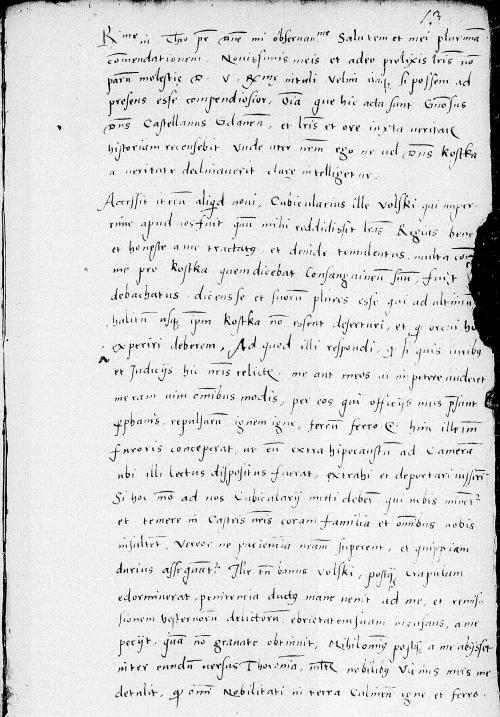 13
R^me in Chro pr Dne mi observan^me Salutem et mei plurimā
cōmendationem. Novissimis meis et adeo prolixis lris nō
parū molestię D. V. R^me intuli Velim itaq, si possem ad
presens esse compendiosior, Oīa que hic acta sunt Gnosus
Dns Castellanus Gdanen, et lris et ore iuxta veritatē
historiam recensebit Unde uter nrm ego ne vel Dns Kostka
a veritate declinaverit clare intelligetur.
Accessit iterū aliqd novi, Cubicularius ille Volski qui nuper-
rime apud vos fuit quū mihi reddidisset lras Regias bene
et honeste a me tractatq, et deinde temulentus, multa
me pro Kostka quem dicebat Consanguineū suū, fuit
debachatus. dicens se et suorū plures esse qui ad ultimū
halitū usq, ipm Kostka nō essent deserturi, et
experiri deberem, Ad quod illi respondi, q si quis iuribq
et Iudicijs hic nris relictis. me aut meos vi impetere auderet
meram vim omibus modis, per eos qui officijs meis psunt
repulsurū ignem igne, ferrū ferro &. hinc ille tm
furoris conceperat, ut eū extra hipocaustū ad Camerā
ubi illi lectus dispositus fuerat, extrahi et deportari iusseri
Si hoc mō ad nos Cubicularij mitti debet qui nobis
et temere in Castris nris coram familia et omibus nobis
insultet, Vereor ne pacientia meam superent, et quippiam
durius Ille tn bonus Volski, postq crapulam
edormierat, penitencia ductq mane venit ad me, et remis-
sionem vesternorū delictorū, ebrietatem suam incusans, a me
pecijt, quā nō gravate obtinuit, Nihilominq postq a me abijsset
inter eundū versus Thoronia, mltr nobilibq Vicinis meis
detulit, q omi Nobilitati in terra Culmen igne et ferro